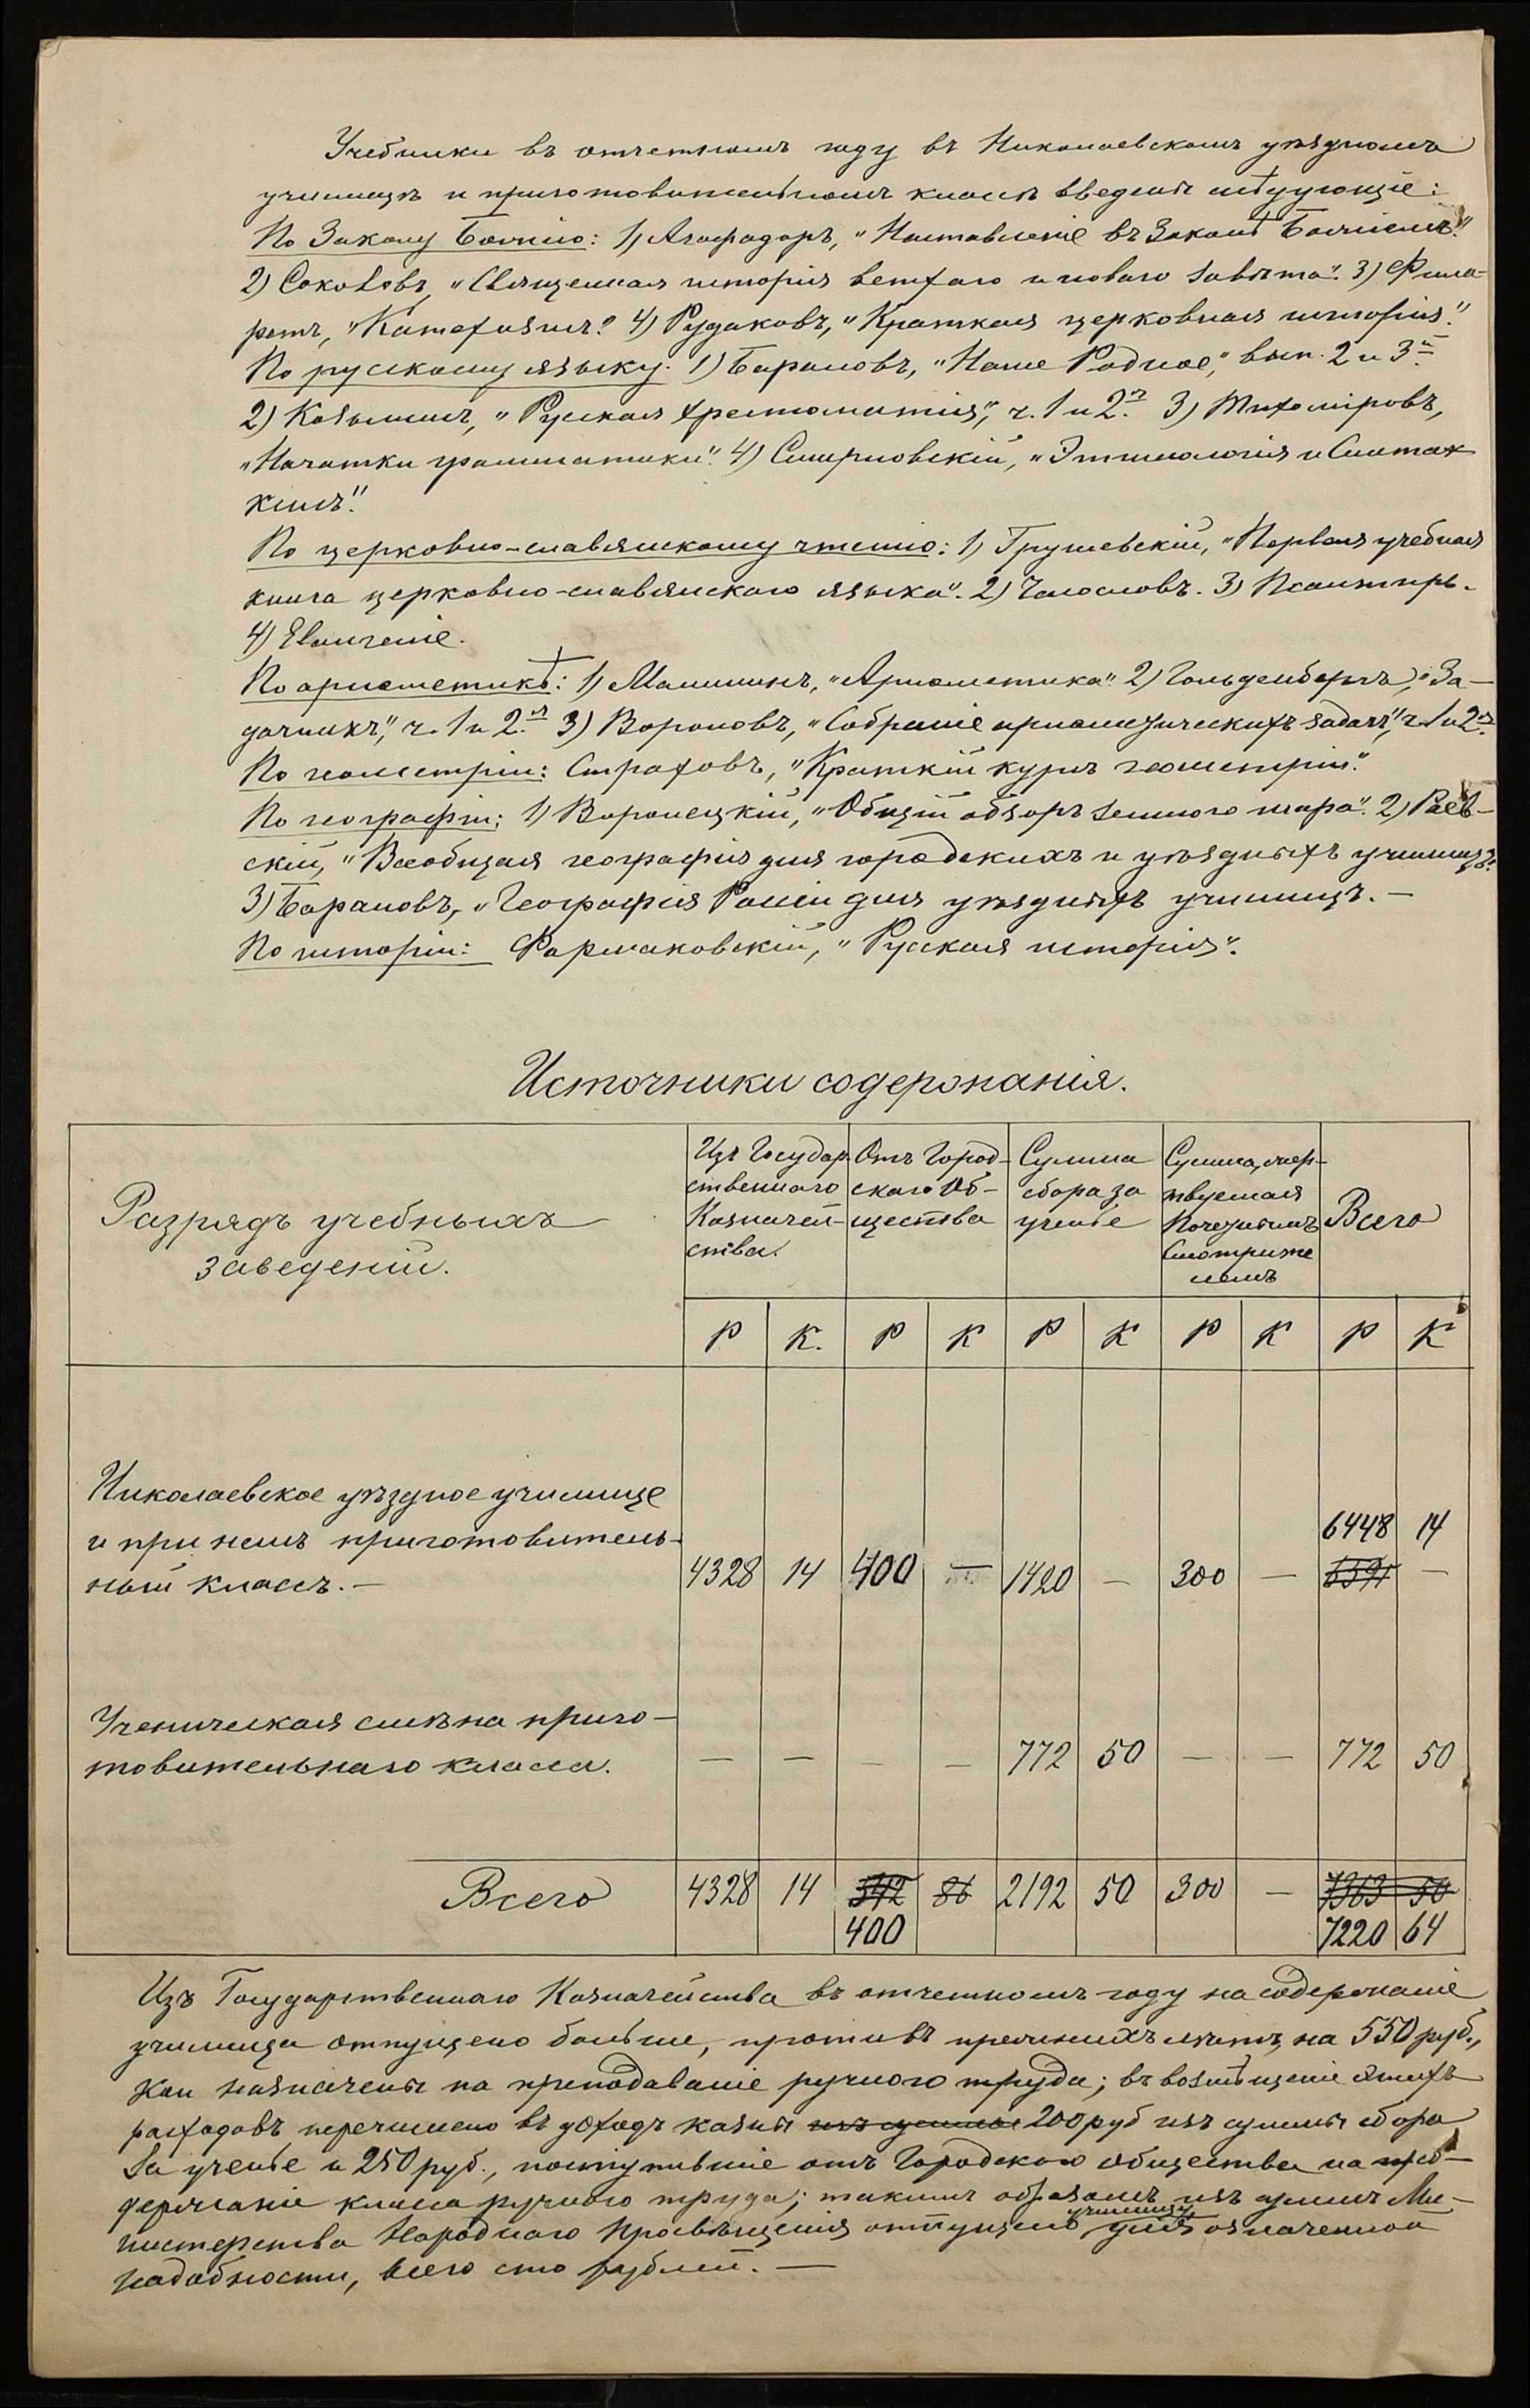 Учебники въ отчетномъ году въ Николаевскомъ уѣздномъ
училищѣ и приготовительномъ классѣ введены слѣдующіе:
По Закону Божію: 1) Агафодоръ, „Наставленіе въ Законѣ Божіемъ".
2) Соколовъ, „Священная исторія ветхаго и новаго завѣта". 3) Фила-
ретъ, „Катехизисъ". 4) Рудаковъ, „Краткая церковная исторія".
По русскому языку. 1) Барановъ, „Наше Родное", вып. 2 и 3й
2) Козьминъ, „Русская хрестоматія", ч. 1 и 2я. 3) Тихоміровъ,
„Начатки грамматики". 4) Смирновскій, „Этимологія и Синтак
сисъ".
По церковно-славянскому чтенію: 1) Грушевскій, „Первая учебная
книга церковно-славянскаго языка". 2) Часословъ. 3) Псалтирь.
4) Евангеліе.
По ариѳметикѣ: 1) Малининъ, „Ариѳметика". 2) Гольденбергъ, „За-
дачникъ", ч. 1 и 2я. 3) Вороновъ, „Собраніе ариѳметическихъ задачъ", ч. 1 и 2я.
По геометріи: Страховъ, „Краткій курсъ геометріи".
По географіи: 1) Воронецкій, „Общій обзоръ земного шара". 2) Раев-
скій, „Всеобщая географія для городскихъ и уѣздныхъ училищъ".
3) Барановъ, „Географія Россіи для уѣздныхъ училищъ. —
По исторіи: Фармаковскій, „Русская исторія".
Источники содержанія.
Разрядъ учебныхъ
заведеній.
Изъ Государ
ственнаго
Казначей-
ства.
Отъ Город-
скаго Об-
щества
Сумма
сбора за
ученье
Сумма, жер-
твуемая
Почетнымъ
Смотрите
лемъ
Всего
Р К. Р К Р К Р К Р К
Николаевское уѣздное училище
и при немъ приготовитель-
ный классъ. —
6448 14
4328 14 400 — 1420 — 300 — —
Ученическая смѣна приго-
товительнаго класса.
— — — — 772 50 — — 772 50
Всего 4328 14 342 86 2192 50 300 — 7363 50
400 7220 64
Изъ Государственнаго Казначейства въ отчетномъ году на содержаніе
училища отпущено больше, противъ прежнихъ лѣтъ, на 550 руб.,
кои назначены на преподаваніе ручного труда; въ возмѣщеніе этихъ
расходовъ перечислено въ доходъ казны изъ суммы 200 руб изъ суммы сбора
за ученье и 250 руб., поступившіе отъ Городского общества на
держаніе класса ручного труда; такимъ образомъ изъ суммъ Ми-
нистерства Народнаго Просвѣщенія отпущено училищу для означенной
надобности, всего сто рублей. —